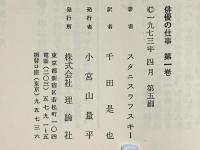 俳優の仕事 第一巻
©一九七三年 四月 第五刷
著者 スタニスラフスキー
訳者 千田是也
発行者 小宮山量平
発行所 株式会社 理論社
東京都新宿区若松町一〇四
電話(〇三)五七九一
振替口座(東京)九五七三六